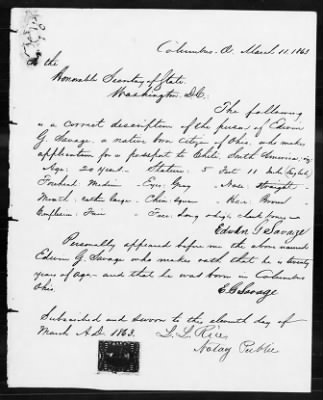 Columbus, O. March 11. 1863
To the
Honorable Secretary of State
Washington D.C.
The following
is a correct description of the person of Edwin
G. Savage, a native born citizen of Ohio, who makes
application for a passport to Chili, South America, viz
Age: 20 years - Stature: 5 Feet 11 Inch (English)
Forehead: Medium - Eyes: Gray - Nose: Straight -
Mouth: rather large - Chin: square - Hair: Brown
Complexion: Fair - Face: Long - high cheek bones
Edwin G Savage
Personally appeared before me the above named
Edwin G. Savage who makes oath that he is twenty
years of age - and that he was born in Columbus
Ohio.
E G Savage
Subscribed and sworn to this eleventh day of
March A.D. 1863.
L. L. Rice
Notary Public